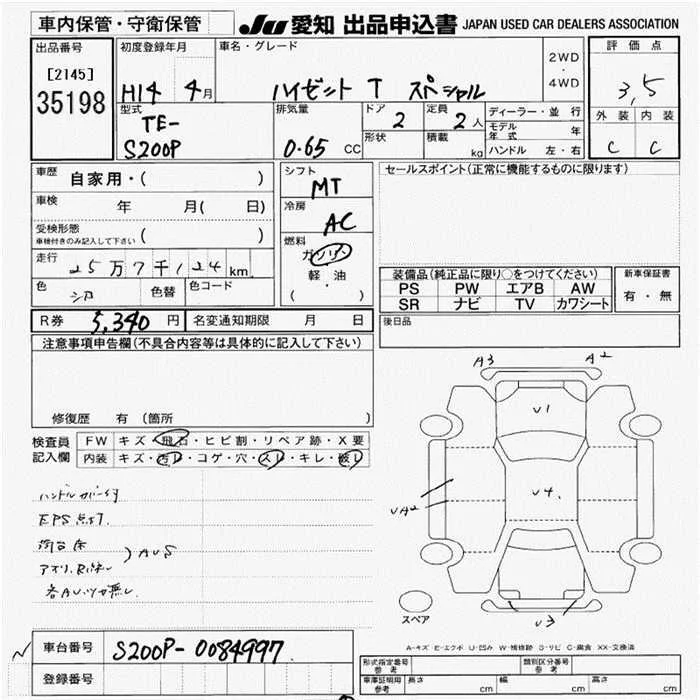 車内保管・守衛保管
JU 愛知 出品申込書 JAPAN USED CAR DEALERS ASSOCIATION
出品番号
[2145]
35198
初度登録年月
H14 4月
車名・グレード
ハイゼット T スペシャル
2WD
・
4WD
評価点
3,5
外装 内装
C C
型式
TE-
S200P
排気量
0.65 CC
ドア
2
定員
2人
形状
積載
kg
ディーラー・並行
モデル年式 年
ハンドル 左・右
車歴
自家用・( )
車検
年 月( 日)
受検形態
車検付きのみ記入して下さい ( )
走行
25万7千124km
色
シロ
色替
色コード
シフト
MT
冷房
AC
燃料
ガソリン
軽油
( ・ )
セールスポイント(正常に機能するものに限ります)
装備品(純正品に限り○をつけてください)
PS PW エアB AW
SR ナビ TV カワシート
新車保証書
有・無
後日品
R券 5,340円
名変通知期限 月 日
注意事項申告欄(不具合内容等は具体的に記入して下さい)
修復歴 有 (箇所 )
検査員
記入欄
FW キズ・飛石・ヒビ割・リペア跡・X要
内装 キズ・汚レ・コゲ・穴・スレ・キレ・破レ
ハンドルカバー付
EPS点灯
荷台床
AUS
A3 A2
U1
U4.
UA2
U3
スペア
A-キズ E-エクボ U-凹み W-補修跡 S-サビ C-腐食 XX-交換済
車台番号
S200P-0084997
登録番号
形式指定番号
参考
類別区分番号
参考
車庫証明用
参考
長さ cm
幅 cm
高さ cm